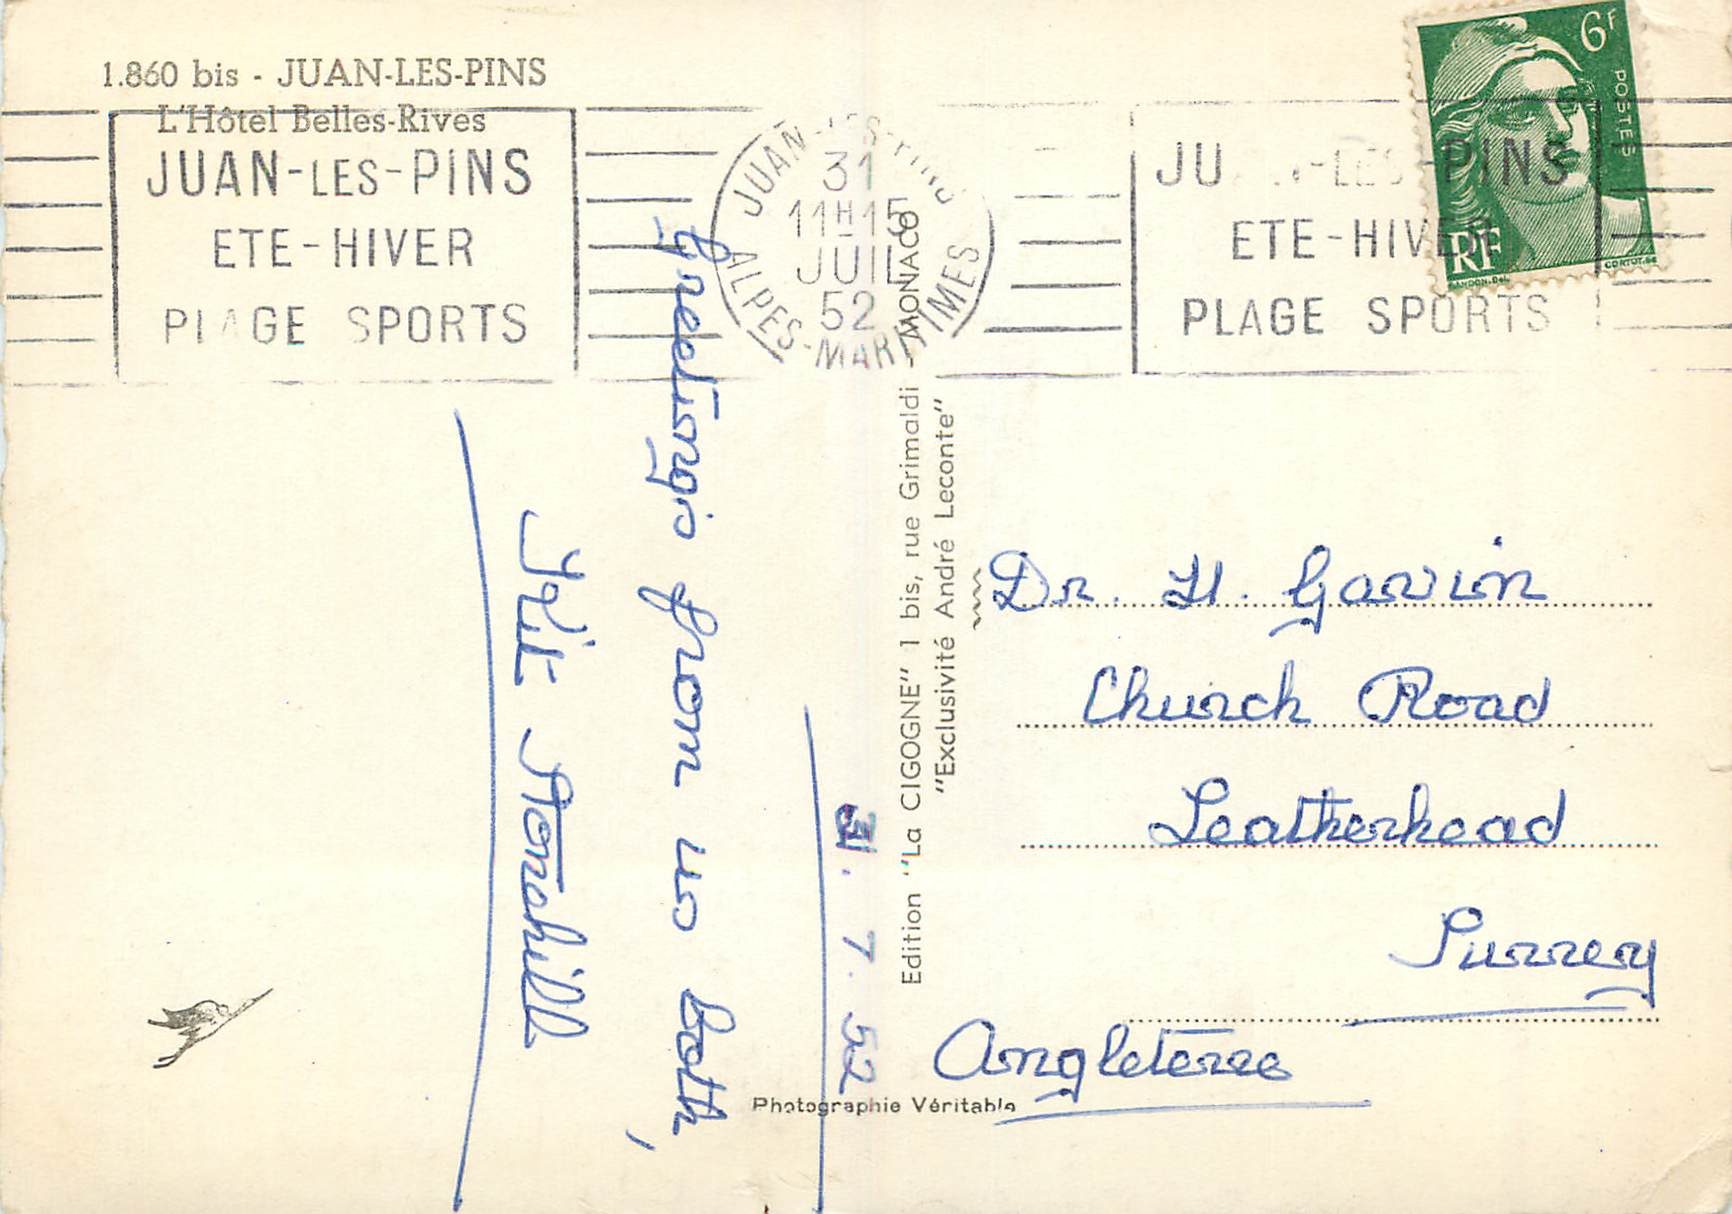 1.860 bis - JUAN-LES-PINS
L'Hôtel Belles-Rives
JUAN-LES-PINS
ETE-HIVER
PLAGE SPORTS
JUAN-LES-PINS
31
11H15
JUIL
52
ALPES-MARITIMES
JUAN-LES-PINS
ETE-HIVER
PLAGE SPORTS
6F
POSTES
RF
GANDON.DEL
CORTOT.SC
31. 7. 52
Greetings from us both,
Stonehill
Edition "La CIGOGNE" 1 bis, rue Grimaldi - MONACO
"Exclusivité André Leconte"
Dr. H. Gavin
Church Road
Leatherhead
Surrey
Angleterre
Photographie Véritable